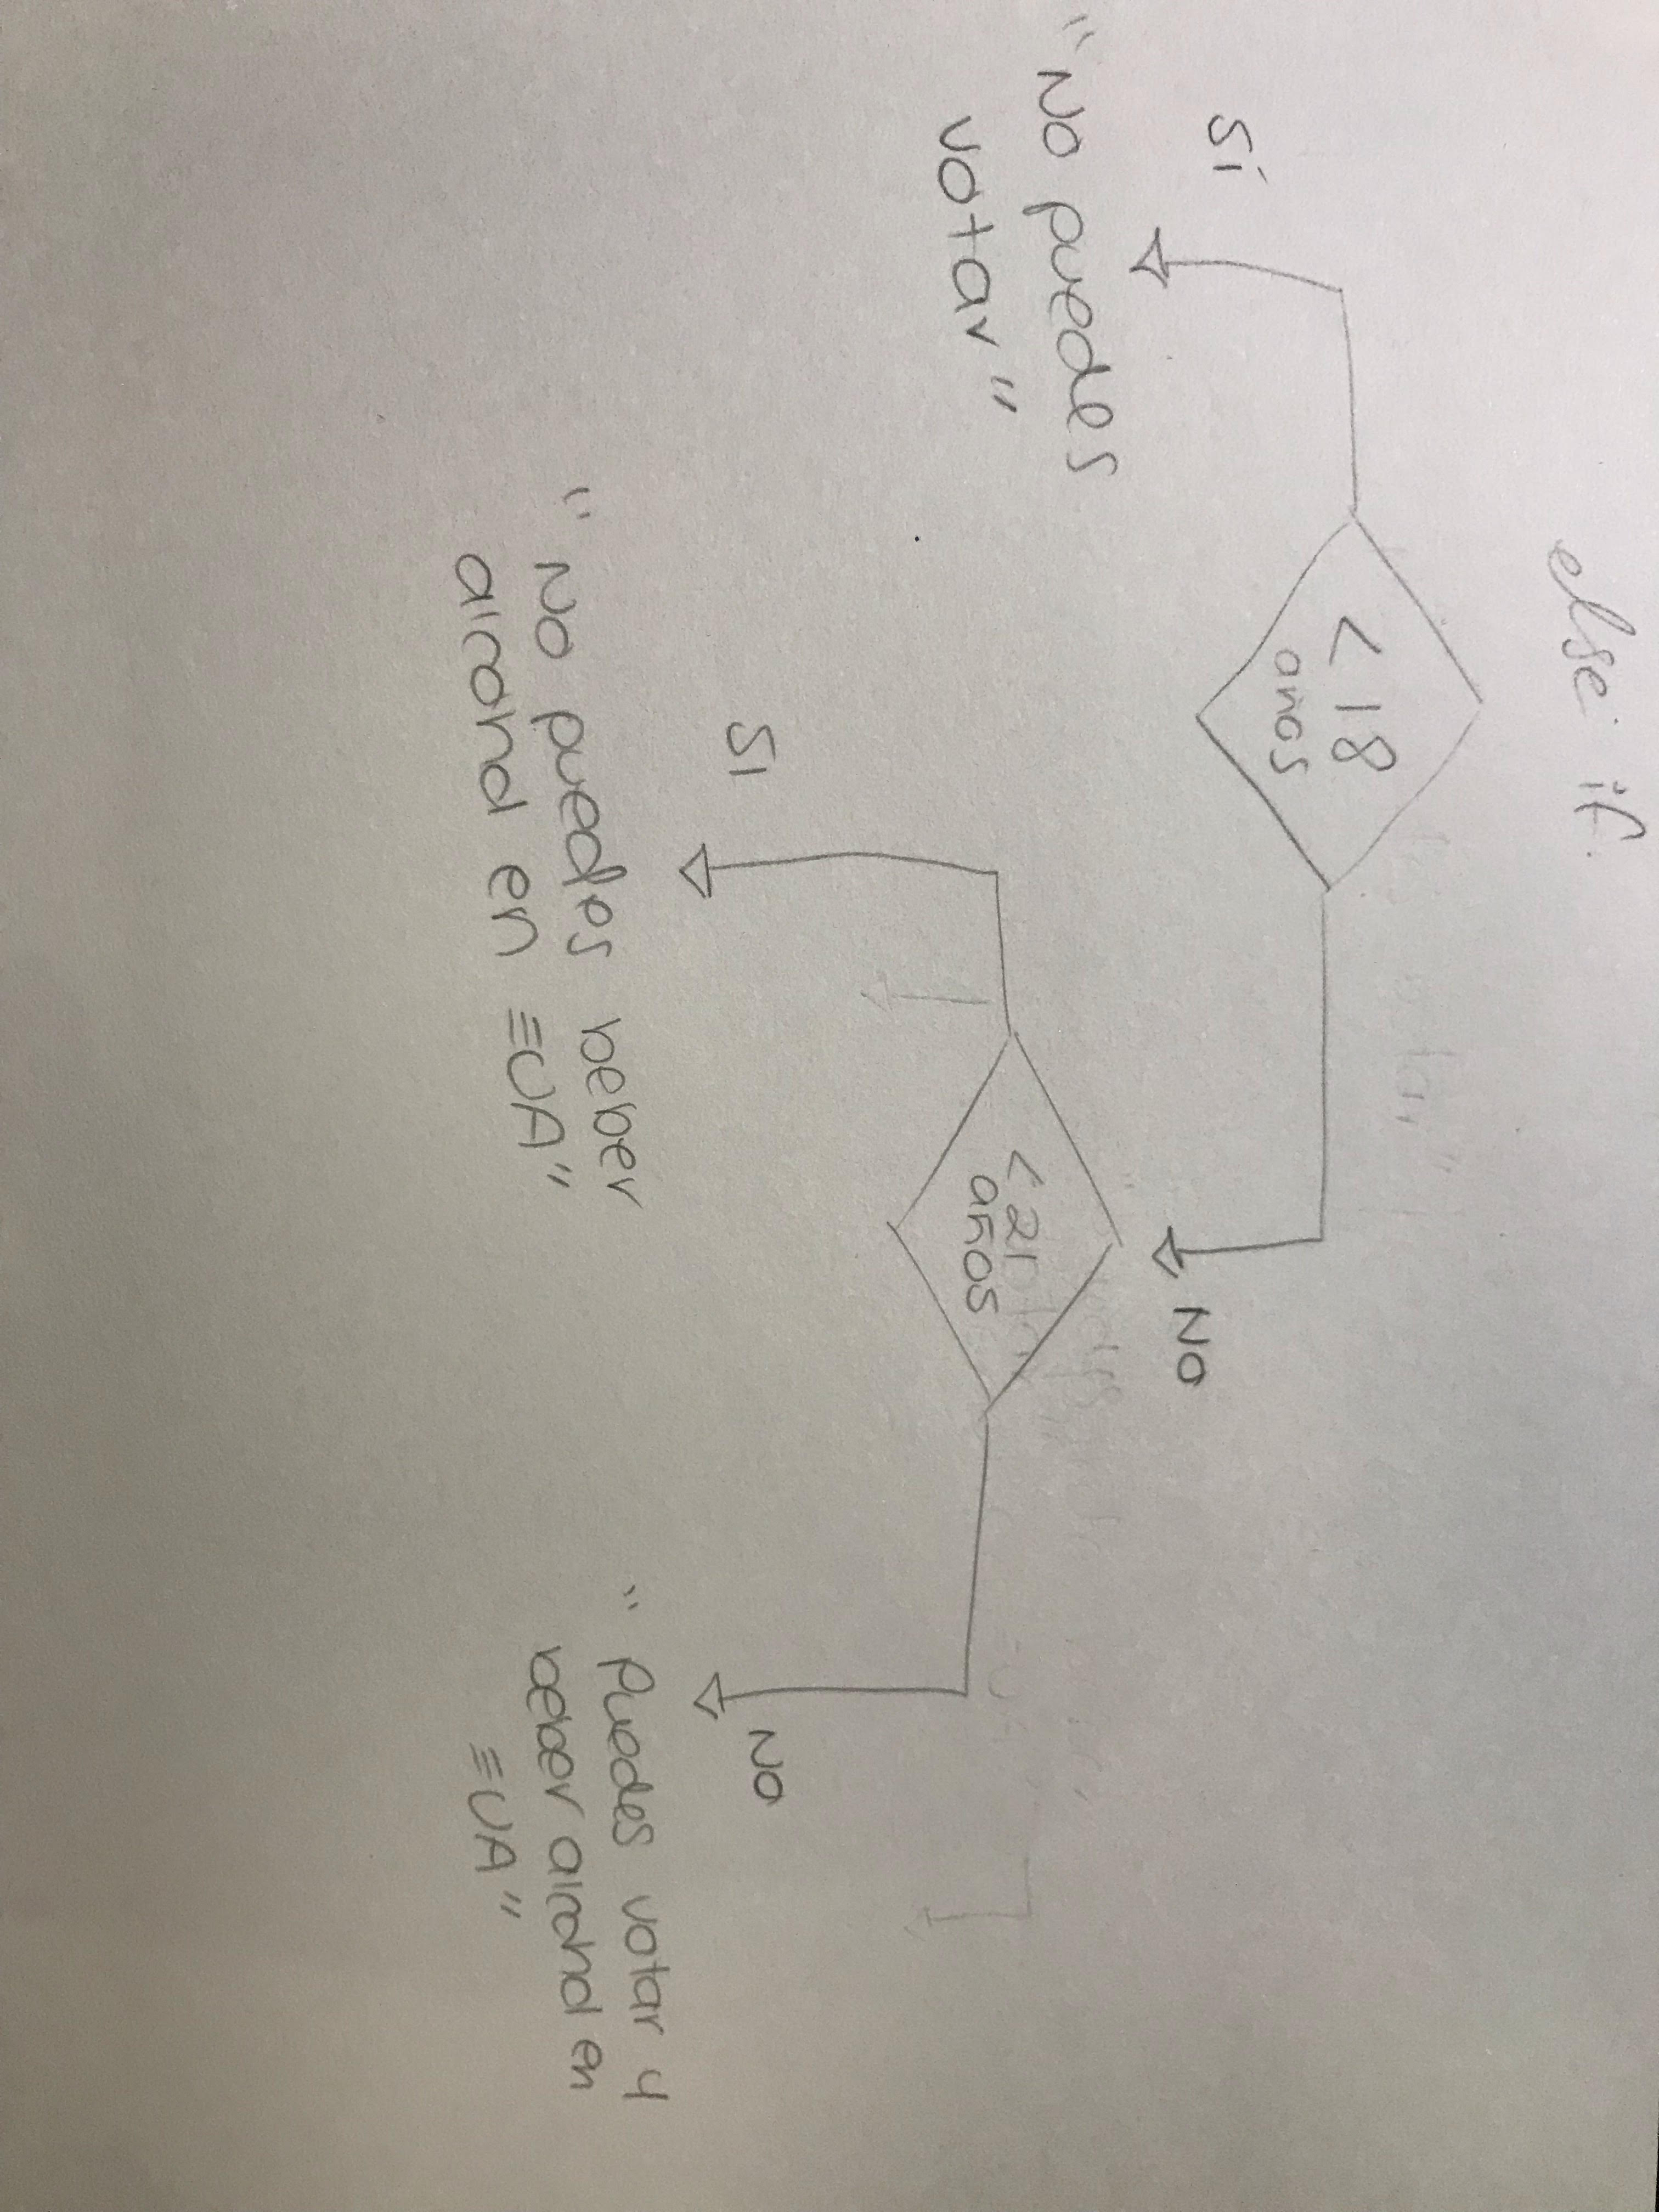 else if
< 18
años
Sí
NO
"No puedes
votar"
< 21
años
SI
NO
"No puedes beber
alcohol en EUA"
"Puedes votar y
beber alcohol en
EUA"